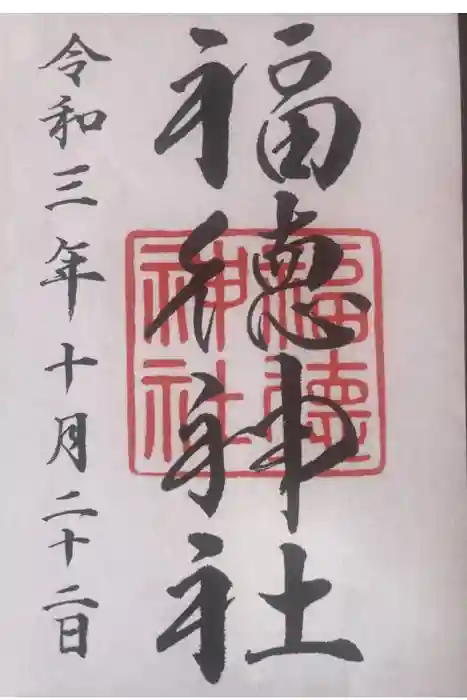 福德神社
福德神社
令和三年十月二十二日